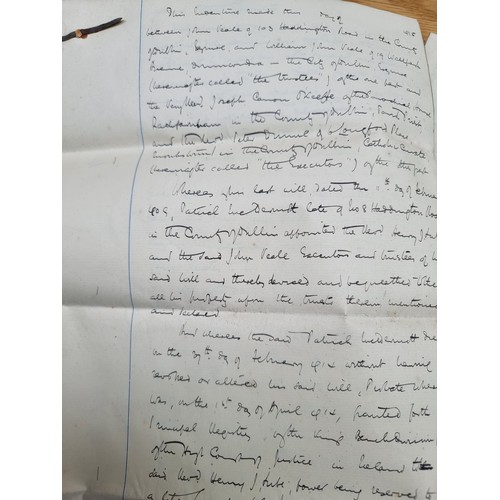 This Indenture made the day of 1915
between John Veale of 103 Haddington Road in the County
of Dublin, Esquire and William John Veale of 19 Wellpark
Avenue Drumcondra in the City of Dublin Esquire
(hereinafter called "the trustees") of the one part and
the Very Revd Joseph Canon O'Keeffe of the Parochial House
Rathfarnham in the County of Dublin, Parish Priest
and the Revd Peter of Longford Place
Monkstown in the County of Dublin, Catholic Curate
(hereinafter called "the Executors") of the other part
Whereas by his last will, dated the day of
1909, Patrick McDermott late of 103 Haddington Road
in the County of Dublin appointed the Revd Henry J
and the said John Veale Executors and trustees of his
said will and thereby devised and bequeathed to them
all his property upon the trusts therein mentioned
and
And whereas the said Patrick McDermott died
on the 27th day of February 1914 without having
revoked or altered his said will, Probate whereof
was, on the 1st day of April 1914, granted forth
Principal Registry of the King's Bench Division
of the High Court of Justice in Ireland to the
said Revd Henry J power being reserved to